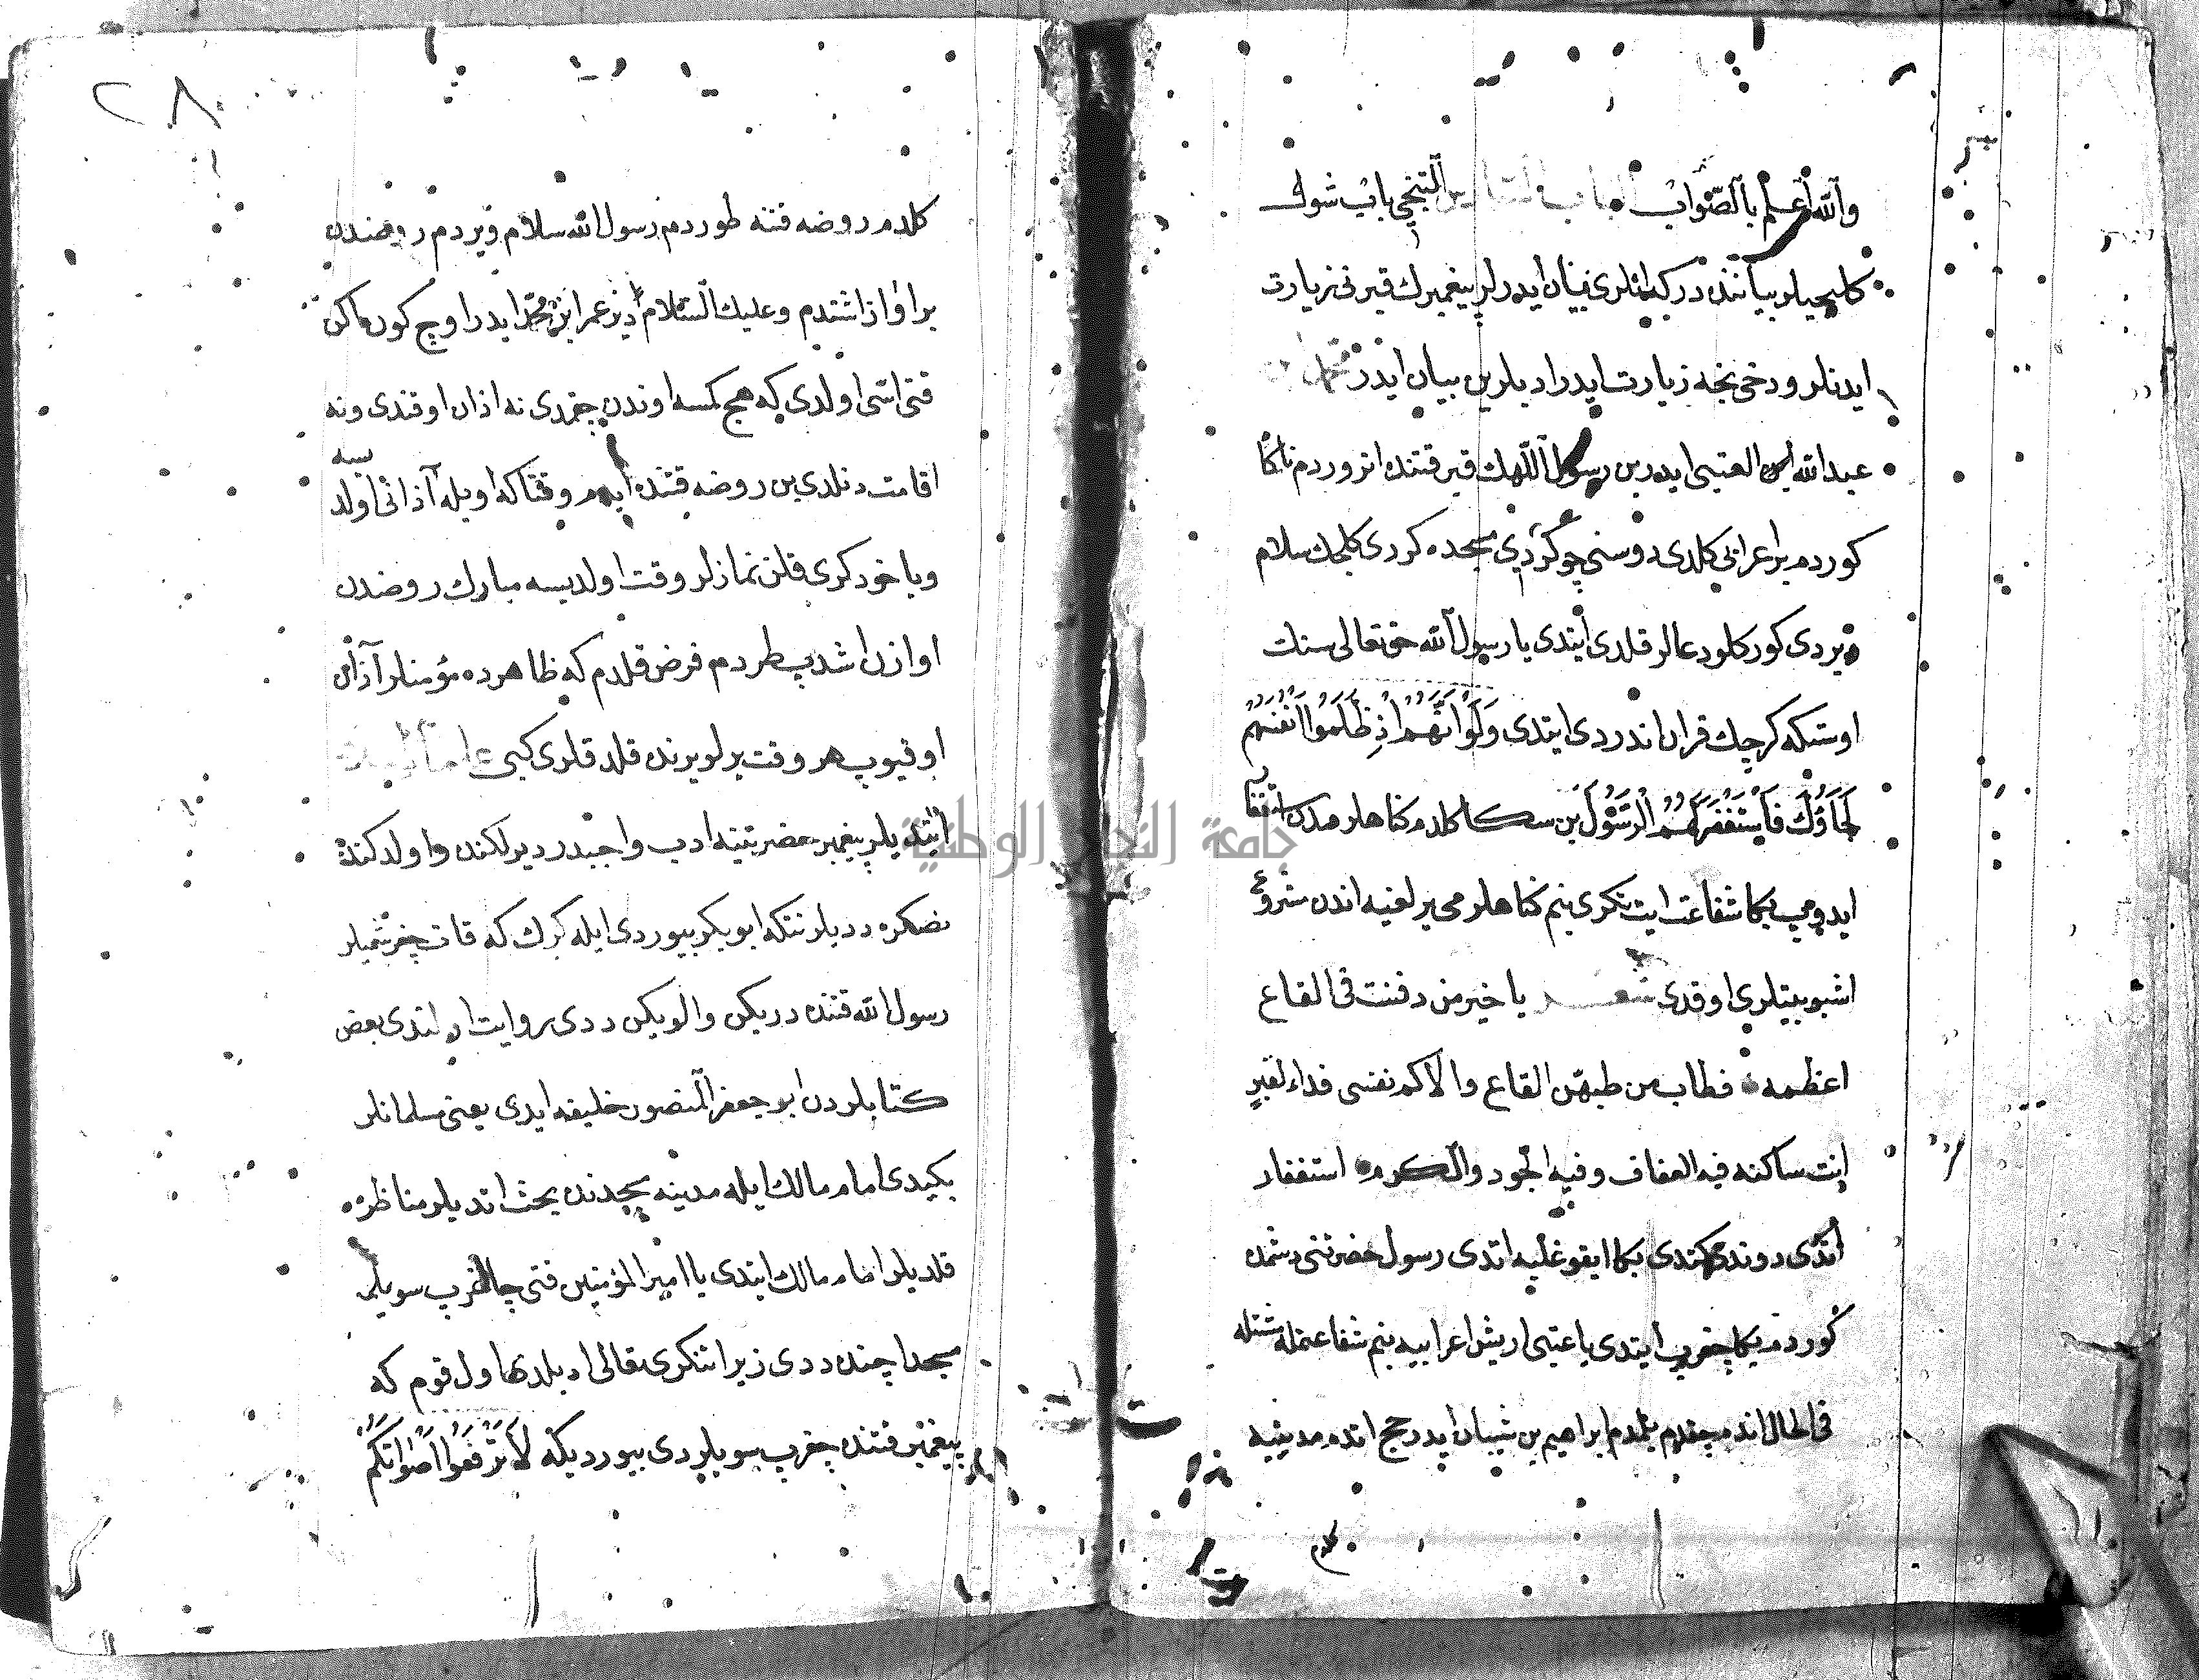 والله أعلم بالصواب الباب السادس التنجي باب شول
كليجيلر بياننده در كه انلری بيان ايدرلر پيغمبرك قبرنی زيارت
ايدنلر ودخی نجه زيارت ايدر ادبلرين بيان ايدر محمد بن
عبدالله ابن العتبی ايدر بن رسول اللهك قبر قتنده اتروردم ناكا
كوردم بر اعرابی كلدی دوسنی چوكردی مسجده كردی كلجك سلام
ويردی كوركلو دعالر قلدی ايتدی يا رسول الله حق تعالی سنك
اوستكه كرچك قران اندردی ايتدی وَلَوْ اَنَّهُمْ اِذْ ظَلَمُوا اَنْفُسَهُمْ
جَاؤُكَ فَاسْتَغْفَرَ لَهُمُ الرَّسُولُ بن سكا كلدم كناهلرمدن استغفا
ايدوب بكا شفاعت ايت تنكری بنم كناهلرمی يرلغيه اندن شروع
اشبو بيتلری اوقدی شعر يا خير من دفنت فی القاع
اعظمه فطاب من طيبهن القاع والاكم نفسی فداء لقبر
انت ساكنه فيه العفاف وفيه الجود والكرم استغفار
اتدی دوندی كتدی بكا ايقو غلبه اتدی رسول حضرتنی دشمده
كوردم بكا چغرب ايتدی يا عتبی اريش اعرابيه بنم شفاعتمله مشتله
فی الحال اندم چقدم بلمدم ابراهيم بن شيبان ايدر حج اتدم مدينيه
كلدم
٢٨
كلدم روضه قتنه طوردم رسول الله سلام ويردم روضدن
بر اواز اشتدم وعليك السلام دير عمر ابن محمد ايدر اوچ كون ماكن
قتی اسی اولدی كه هج كمسه اوندن چقمدی نه اذان اوقندی ونه
اقامت دنلدی بن روضه قتنده ايدم وقتاكه اويله آذانی اولدیسه
ويا خود كری قلن نمازلر وقت اولديسه مبارك روضدن
اوازن اشدب طردم فرض قلدم كه ظاهرده مؤمنلر آذان
اوقيوب هر وقت يرلو يرنده قلد قلری كبی علما
ايتديلر پيغمبر حضرتنه ادب واجبدر ديرلكنده واولد كنده
نضكره دديلر نتكه ابوبكر بيوردی ايله كرك كه قات چغرشميلر
رسول الله قتنده دريكن والويكن ددی روايت اولندی بعض
كتابلردن ابو جعفر المنصور خليفه ايدی يعنی مسلمانلر
بكيدی امام مالك ايله مدينه مسجدنده بحث اتديلر مناظره
قلديلر امام مالك ايتدی يا امير المؤمنين قتی چاغرب سويلمه
مسجد اچنده ددی زيرا تنكری تعالی ادبلدی اول قوم كه
پيغمبر قتنده چغرب سويلردی بيوردیكه لَا تَرْفَعُوا اَصْوَاتَكُمْ
جامعة النجاح الوطنية